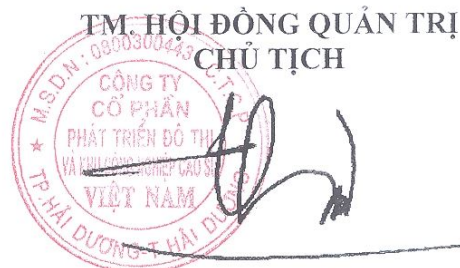 TM. HỘI ĐỒNG QUẢN TRỊ
CHỦ TỊCH
M.S.D.N: 0800300443-C.T.C.P
CÔNG TY
CỔ PHẦN
PHÁT TRIỂN ĐÔ THỊ
VÀ KHU CÔNG NGHIỆP CAO SU
VIỆT NAM
TP. HẢI DƯƠNG-T. HẢI DƯƠNG